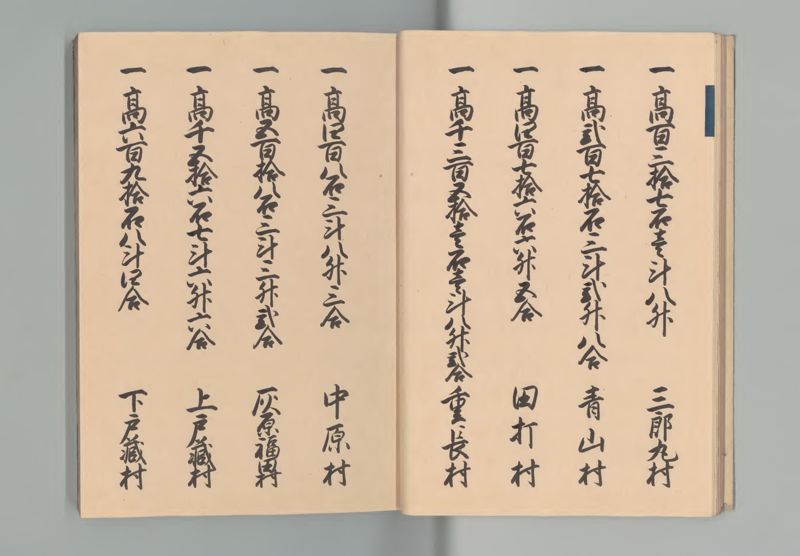 一 高百三拾七石壱斗八升 三郎丸村
一 高弐百七拾石三斗弐升八合 青山村
一 高四百七拾六石六升五合 田打村
一 高千三百五拾壱石壱斗八升弐合 重長村
一 高四百八石三斗八升三合 中原村
一 高五百拾八石三斗三升弐合 灰原福田村
一 高千五拾六石七斗六升六合 上戸蔵村
一 高六百九拾石八斗四合 下戸蔵村